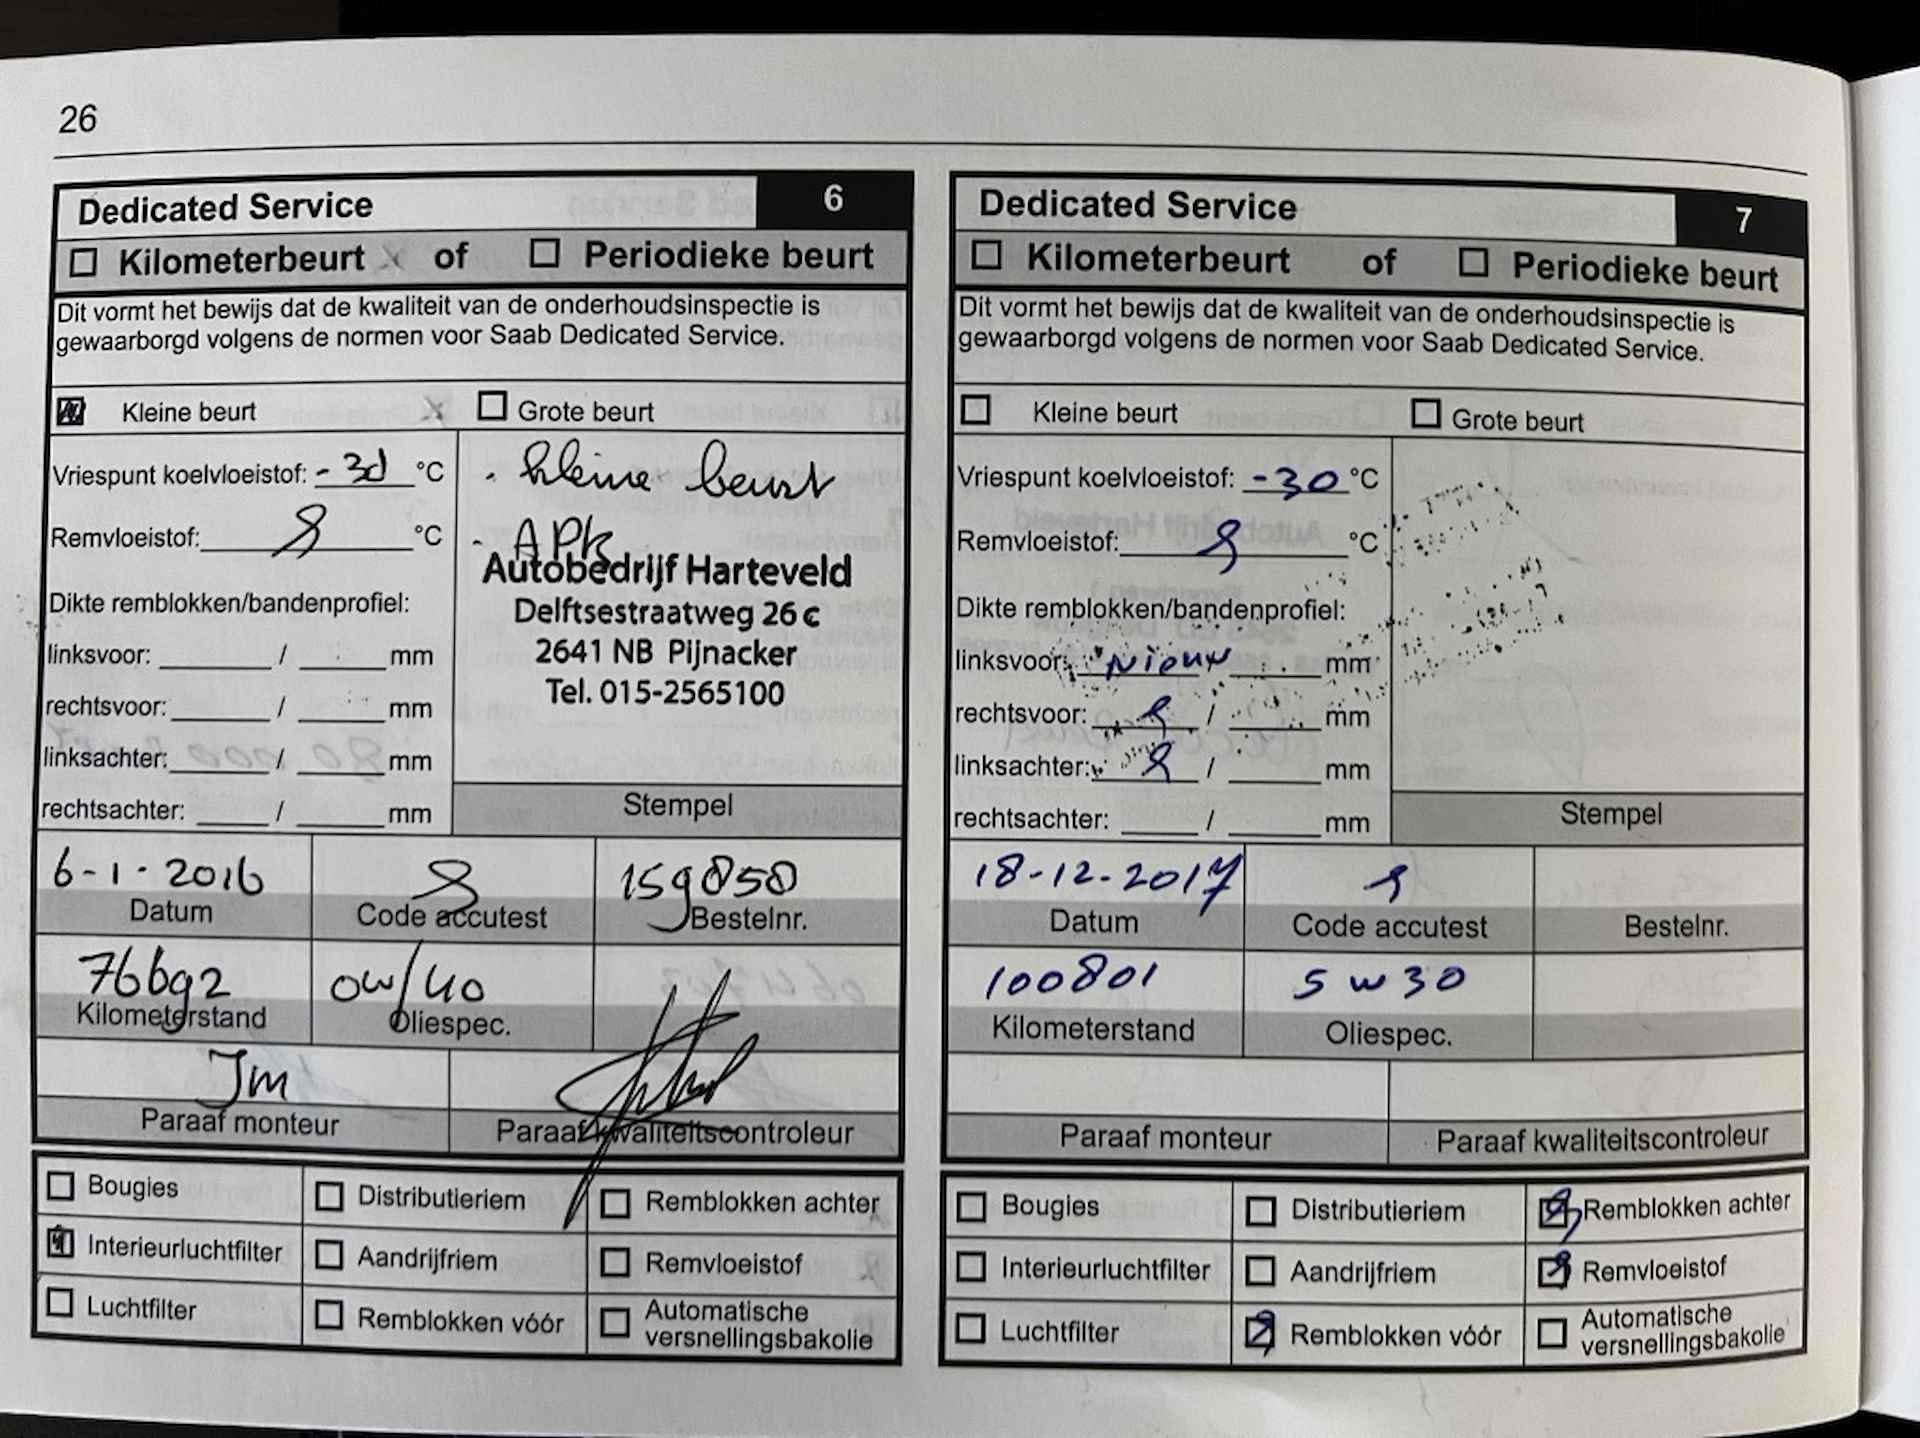 26
Dedicated Service 6
Kilometerbeurt of Periodieke beurt
Dit vormt het bewijs dat de kwaliteit van de onderhoudsinspectie is
gewaarborgd volgens de normen voor Saab Dedicated Service.
Kleine beurt Grote beurt
Vriespunt koelvloeistof: -30 °C
Remvloeistof: °C
Dikte remblokken/bandenprofiel:
linksvoor: / mm
rechtsvoor: / mm
linksachter: / mm
rechtsachter: / mm
- kleine beurt
- APK
Autobedrijf Harteveld
Delftsestraatweg 26 c
2641 NB Pijnacker
Tel. 015-2565100
Stempel
6-1-2016 159858
Datum Code accutest Bestelnr.
76692 0W/40
Kilometerstand Oliespec.
Jm
Paraaf monteur Paraaf kwaliteitscontroleur
Bougies Distributieriem Remblokken achter
Interieurluchtfilter Aandrijfriem Remvloeistof
Luchtfilter Remblokken vóór Automatische
versnellingsbakolie
Dedicated Service 7
Kilometerbeurt of Periodieke beurt
Dit vormt het bewijs dat de kwaliteit van de onderhoudsinspectie is
gewaarborgd volgens de normen voor Saab Dedicated Service.
Kleine beurt Grote beurt
Vriespunt koelvloeistof: -30 °C
Remvloeistof: °C
Dikte remblokken/bandenprofiel:
linksvoor: Nieuw mm
rechtsvoor: / mm
linksachter: / mm
rechtsachter: / mm
Stempel
18-12-2017
Datum Code accutest Bestelnr.
100801 5W30
Kilometerstand Oliespec.
Paraaf monteur Paraaf kwaliteitscontroleur
Bougies Distributieriem Remblokken achter
Interieurluchtfilter Aandrijfriem Remvloeistof
Luchtfilter Remblokken vóór Automatische
versnellingsbakolie